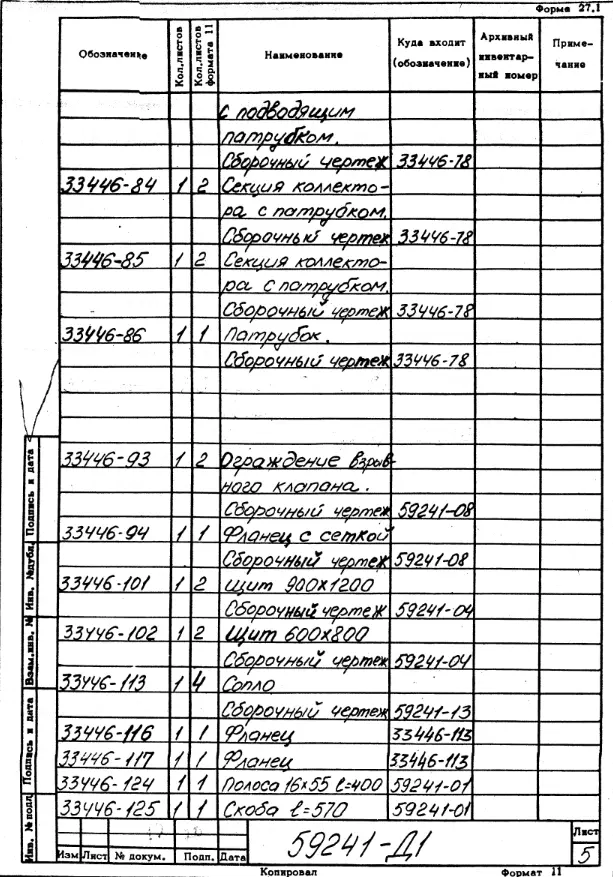 Форма 27.1
Обозначение Кол.листов Кол.листов формата 11 Наименование Куда входит (обозначение) Архивный инвентарный номер Примечание
с подводящим
патрубком.
Сборочный чертеж 33446-78
33446-84 1 2 Секция коллекто-
ра с патрубком.
Сборочный чертеж 33446-78
33446-85 1 2 Секция коллекто-
ра с патрубком.
Сборочный чертеж 33446-78
33446-86 1 1 Патрубок.
Сборочный чертеж 33446-78
33446-93 1 2 Ограждение взрыв-
ного клапана.
Сборочный чертеж 59241-08
33446-94 1 1 Фланец с сеткой
Сборочный чертеж 59241-08
33446-101 1 2 Щит 900х1200
Сборочный чертеж 59241-04
33446-102 1 2 Щит 600х800
Сборочный чертеж 59241-04
33446-113 1 4 Сопло
Сборочный чертеж 59241-13
33446-116 1 1 Фланец 33446-113
33446-117 1 1 Фланец 33446-113
33446-124 1 1 Полоса 16х55 ℓ=400 59241-01
33446-125 1 1 Скоба ℓ=570 59241-01
Инв. № подл. Подпись и дата Взам.инв. № Инв. №дубл. Подпись и дата
59241-Д1
Лист
5
Изм Лист № докум. Подп. Дата
Копировал Формат 11